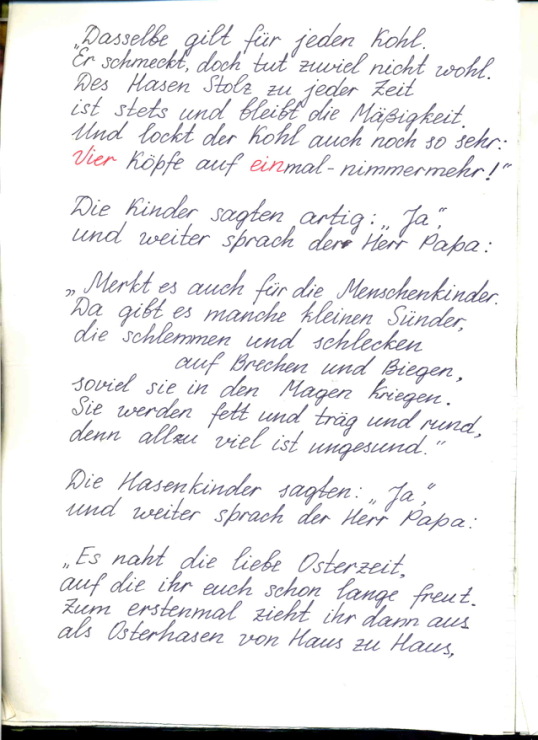 „Dasselbe gilt für jeden Kohl.
Er schmeckt, doch tut zuviel nicht wohl.
Des Hasen Stolz zu jeder Zeit
ist stets und bleibt die Mäßigkeit.
Und lockt der Kohl auch noch so sehr:
Vier Köpfe auf einmal - nimmermehr!“

Die Kinder sagten artig: „Ja“,
und weiter sprach der Herr Papa:

„Merkt es auch für die Menschenkinder.
Da gibt es manche kleinen Sünder,
die schlemmen und schlecken
auf Brechen und Biegen,
soviel sie in den Magen kriegen.
Sie werden fett und träg und rund,
denn allzu viel ist ungesund.“

Die Hasenkinder sagten: „Ja“,
und weiter sprach der Herr Papa:

„Es naht die liebe Osterzeit,
auf die ihr euch schon lange freut.
Zum erstenmal zieht ihr dann aus
als Osterhasen von Haus zu Haus,